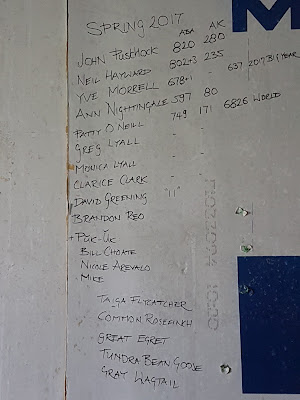 SPRING 2017
ABA AK
JOHN PUSCHOCK 820 280
NEIL HAYWARD 802+3 235
YVE MORRELL 678+1 - 637 2017 BIG YEAR
ANN NIGHTINGALE 597 80
PATTY O'NEILL 749 171 6826 WORLD
GREG LYALL - -
MONICA LYALL - -
CLARICE CLARK -
DAVID GREENING "11"
BRANDON REO
+ PŬK-ŬK
BILL CHOATE
NICOLE AREVALO
MIKE
TAIGA FLYCATCHER
COMMON ROSEFINCH
GREAT EGRET
TUNDRA BEAN GOOSE
GRAY WAGTAIL
M